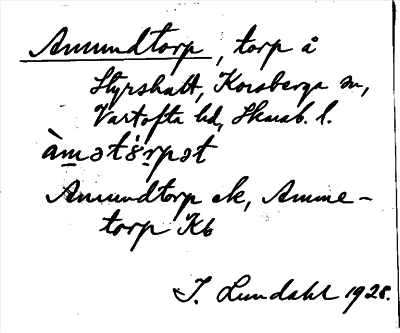 Amundtorp, torp å
Styrshult, Korsberga sn,
Vartofta hd, Skarab. l.
àmətörpət
Amundtorp ek, Amme-
torp Kb
I. Lundahl 1928.